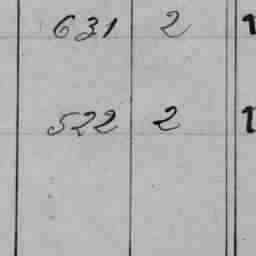 631 2 1
522 2 1